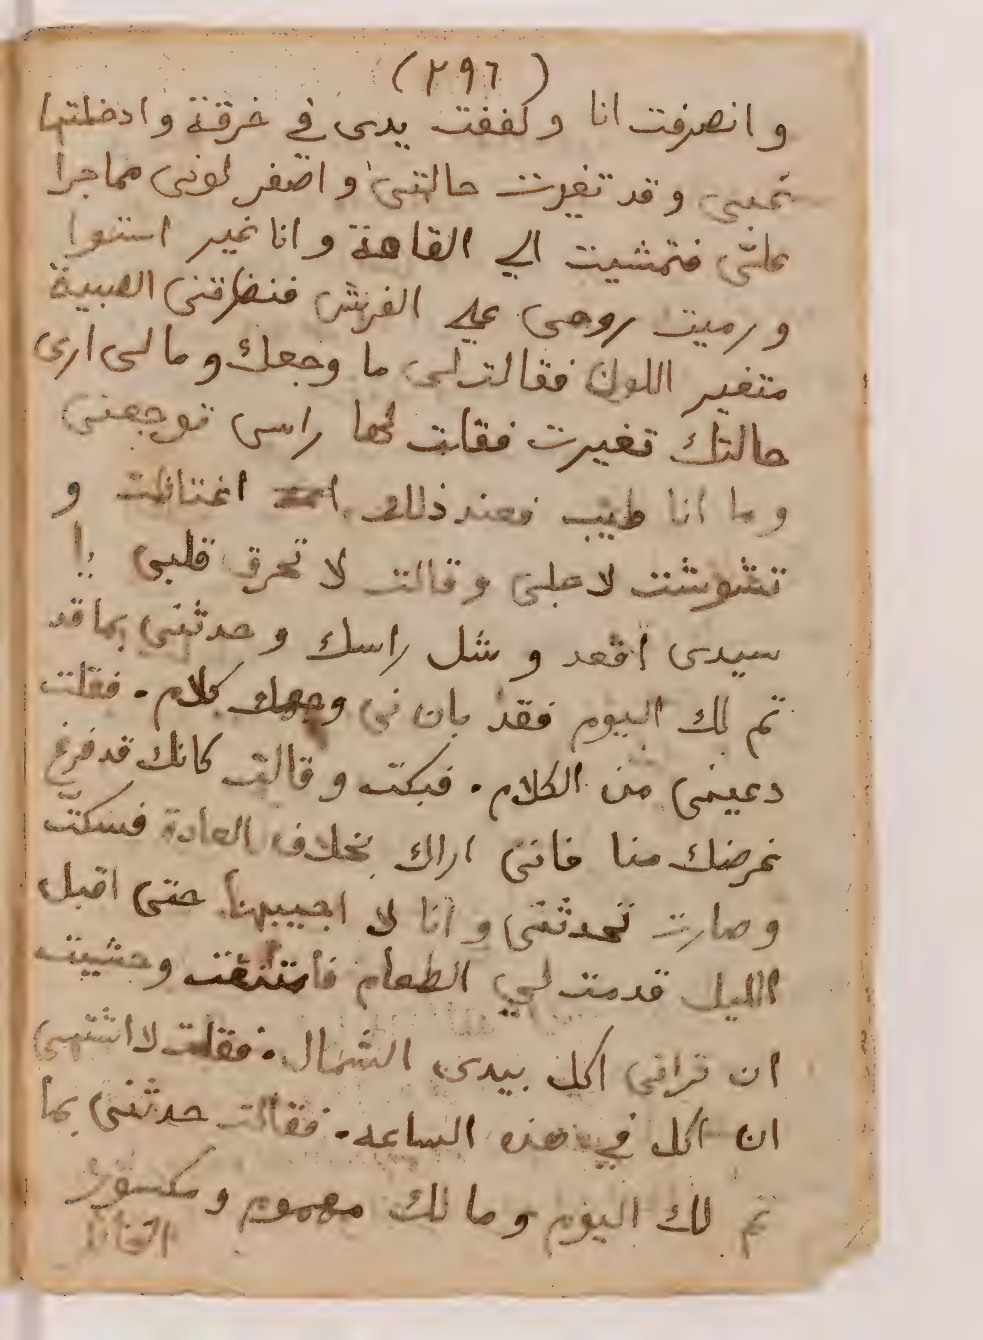 (٢٩٦)
وانصرفت انا وكففت يدى في خرقة وادخلتها
تحبيى وقد تغيرت حالتى واصفر لونى مما جرا
على فتمشيت الي القاعة وانا غير استوا
ورميت روحى على الفرش فنظرتنى الصبية
متغير اللون فقالت لى ما وجعك وما لى ارى
حالتك تغيرت فقلت لها راسى توجعنى
وما انا طيب فعند ذلك اغتاظت و
تشوشت لاجلى وقالت لا تحرق قلبى يا
سيدى اقعد وشل راسك وحدثنى بما قد
تم لك اليوم فقد بان فى وجهك كلام. فقلت
دعينى من الكلام. فبكت وقالت كانك قد فرغ
غرضك منا فانى اراك بخلاف العادة فسكتّ
وصارت تحدثنى وانا لا اجيبها حتى اقبل
الليل قدمت لى الطعام فامتنعت وخشيت
ان ترانى اكل بيدى الشمال. فقلت لا اشتهى
ان اكل في هذه الساعه. فقالت حدثنى بما
تم لك اليوم وما لك مهموم ومكسور